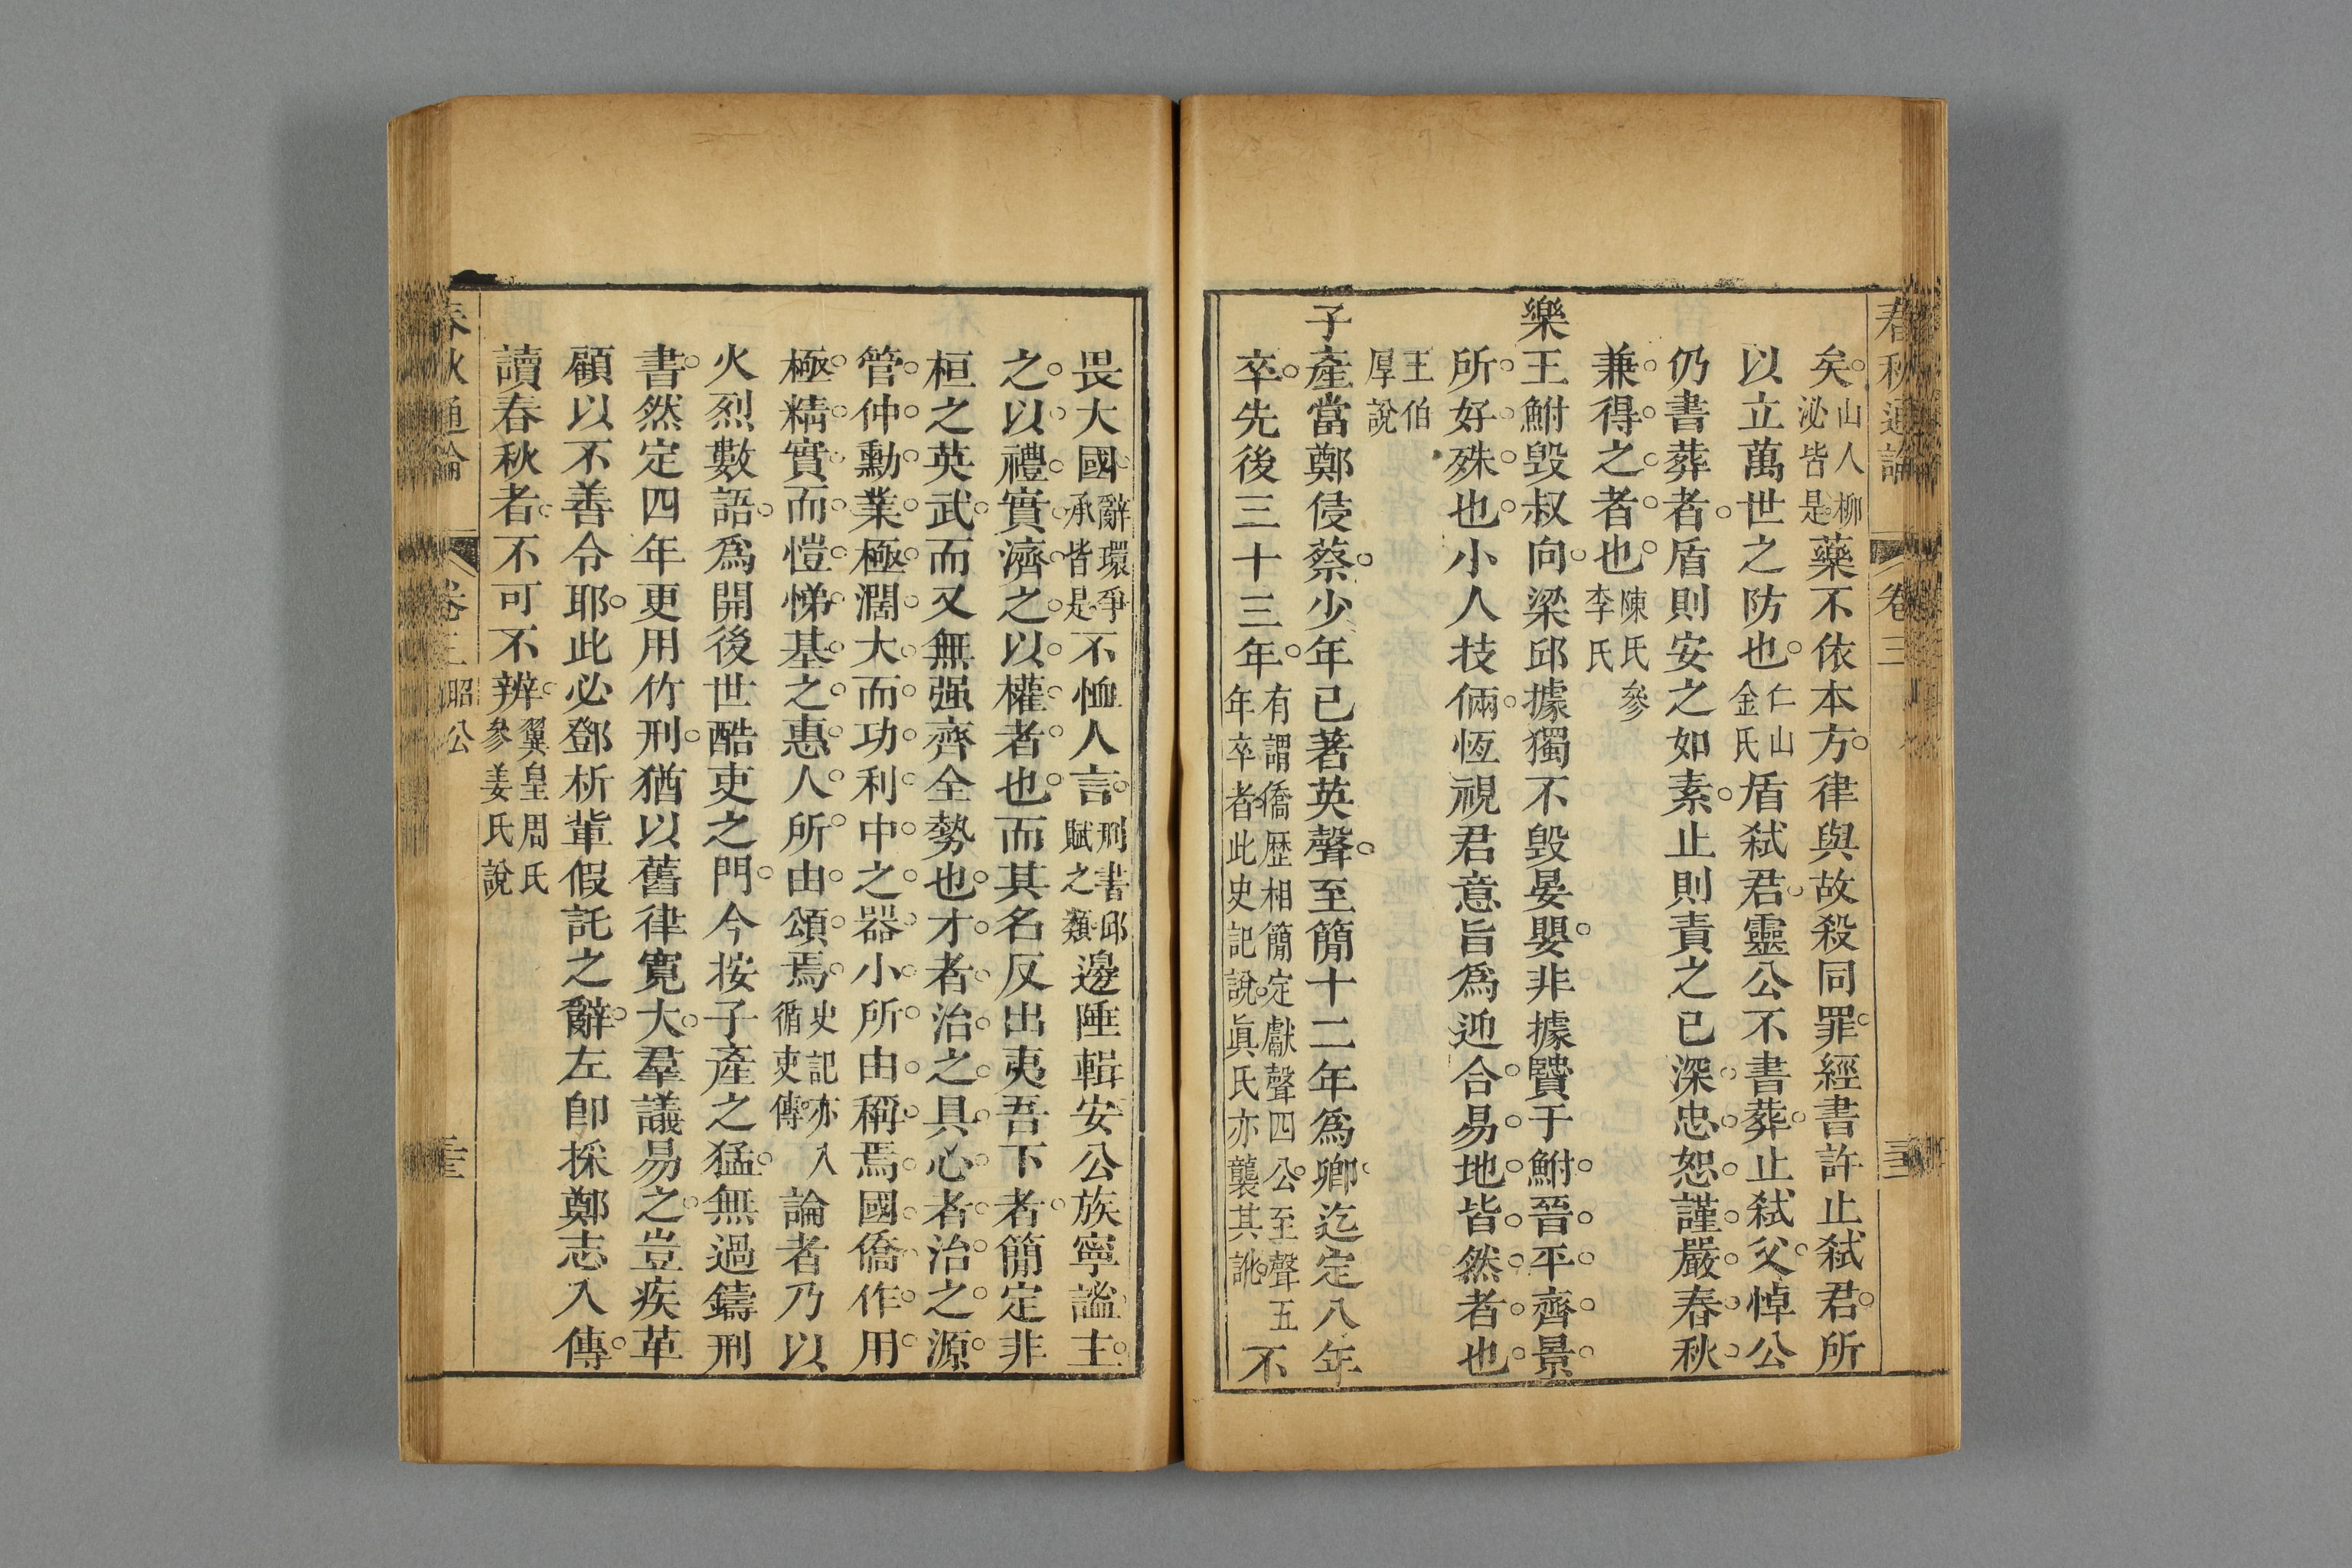 春秋通論 卷三
矣山人柳泌皆是藥不依本方律與故殺同罪經書許止弒君所
以立萬世之防也仁山金氏盾弒君靈公不書葬止弒父悼公
仍書葬者盾則安之如素止則責之已深忠恕謹嚴春秋
兼得之者也陳氏參李氏
樂王鮒毀叔向梁邱據獨不毀晏嬰非據賢于鮒晉平齊景
所好殊也小人技倆恆視君意旨為迎合易地皆然者也
王伯厚說
子產當鄭侵蔡少年已著英聲至簡十二年為卿迄定八年
卒先後三十三年有謂僑歷相簡定獻聲四公至聲五年卒者此史記說眞氏亦襲其訛不
畏大國辭環爭承皆是不恤人言刑書邱賦之類邊陲輯安公族寧謐主
之以禮實濟之以權者也而其名反出夷吾下者簡定非
桓之英武而又無强齊全勢也才者治之具心者治之源
管仲勳業極濶大而功利中之器小所由稱焉國僑作用
極精實而愷悌基之惠人所由頌焉史記亦入循吏傳論者乃以
火烈數語爲開後世酷吏之門今按子產之猛無過鑄刑
書然定四年更用竹刑猶以舊律寬大羣議易之豈疾革
顧以不善令耶此必鄧析軰假託之辭左卽採鄭志入傳
讀春秋者不可不辨翼皇周氏參姜氏說
春秋通論 卷三 昭公